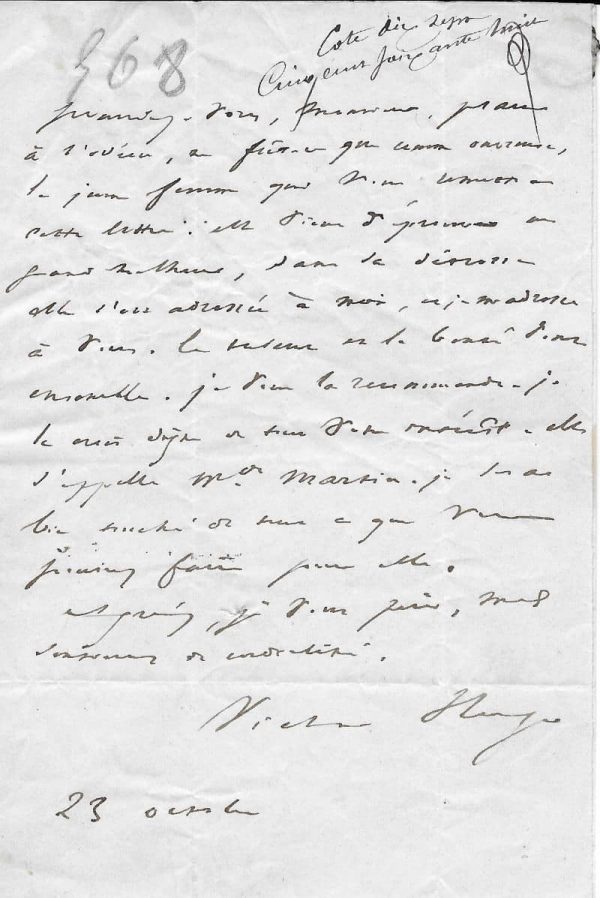 568
Cote dix sept
Cinq cent soixante huit
Pourriez-vous, Monsieur, placer
à l'odéon, ne fût-ce que comme ouvreuse,
la jeune femme qui vous remettra
cette lettre : elle vient d'éprouver un
grand malheur, dans sa détresse
elle s'est adressée à moi, et je m'adresse
à vous. le talent et la bonté vont
ensemble. je vous la recommande. je
la crois digne de tout votre intérêt. elle
s'appelle Mde Martin. je serai
bien touché de tout ce que vous
pourrez faire pour elle.
Agréez, je vous prie, mes
de cordialité.
Victor Hugo
23 octobre